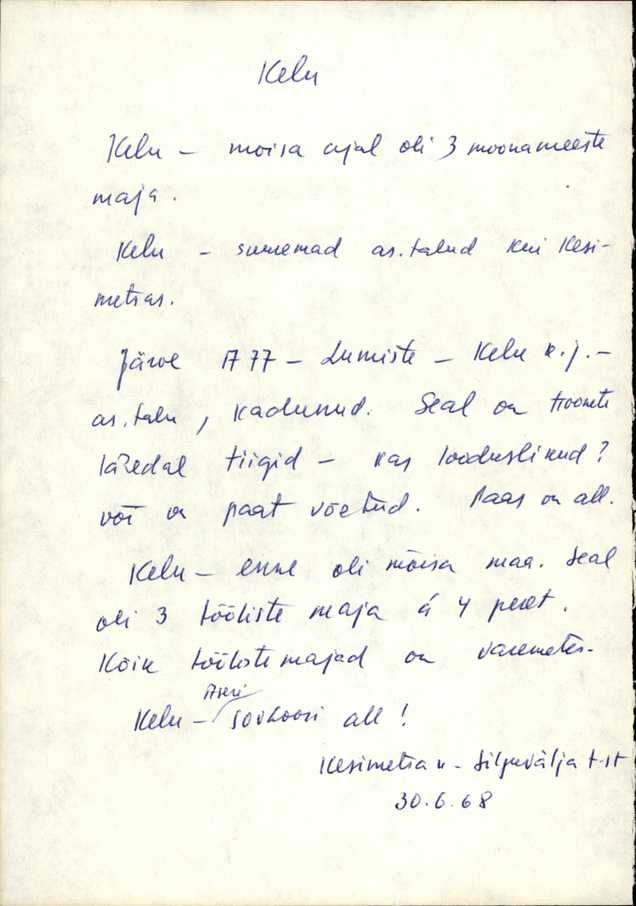 Kelu
Kelu – moisa ajal oli 3 moonameeste
maja.
Kelu – suuremad as. talud kui Kesi-
metsas.
Järve A 77 – Lumiste – Kelu k. j. –
as. talu, kadunud. Seal on hoonete
lähedal tiigid – kas looduslikud?
või on paat võetud. Paas on all.
Kelu – enne oli mõisa maa. Seal
oli 3 tööliste maja á 4 peret.
Kõik töölistemajad on varemetes.
Aseri
Kelu – sovhoosi all!
Kesimetsa k – Silpuvälja t-st
30.6.68